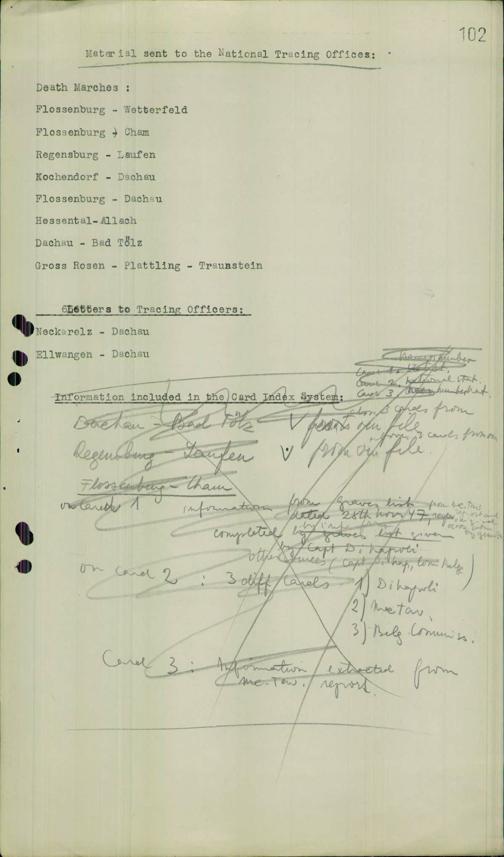 102
Material sent to the National Tracing Offices:
Death Marches :
Flossenburg - Wetterfeld
Flossenburg - Cham
Regensburg - Laufen
Kochendorf - Dachau
Flossenburg - Dachau
Hessental-Allach
Dachau - Bad Tölz
Gross Rosen - Plattling - Traunstein
Letters to Tracing Officers:
Neckarelz - Dachau
Ellwangen - Dachau
Information included in the Card Index System:
Card 3
cards from
Dachau - Bad Tölz V from our file
3 cards from
Regensburg - Laufen V from our file.
Flossenburg - Cham
on card 1 information from graves list
dated 28th Nov 47
completed by graves list given
by Capt Dihapoli
other sources
on card 2 : 3 diff cards - 1) Dihapoli
2) McTaw.
3) Belg Commiss.
Card 3 : Information extracted from
Mc. Taw. report.